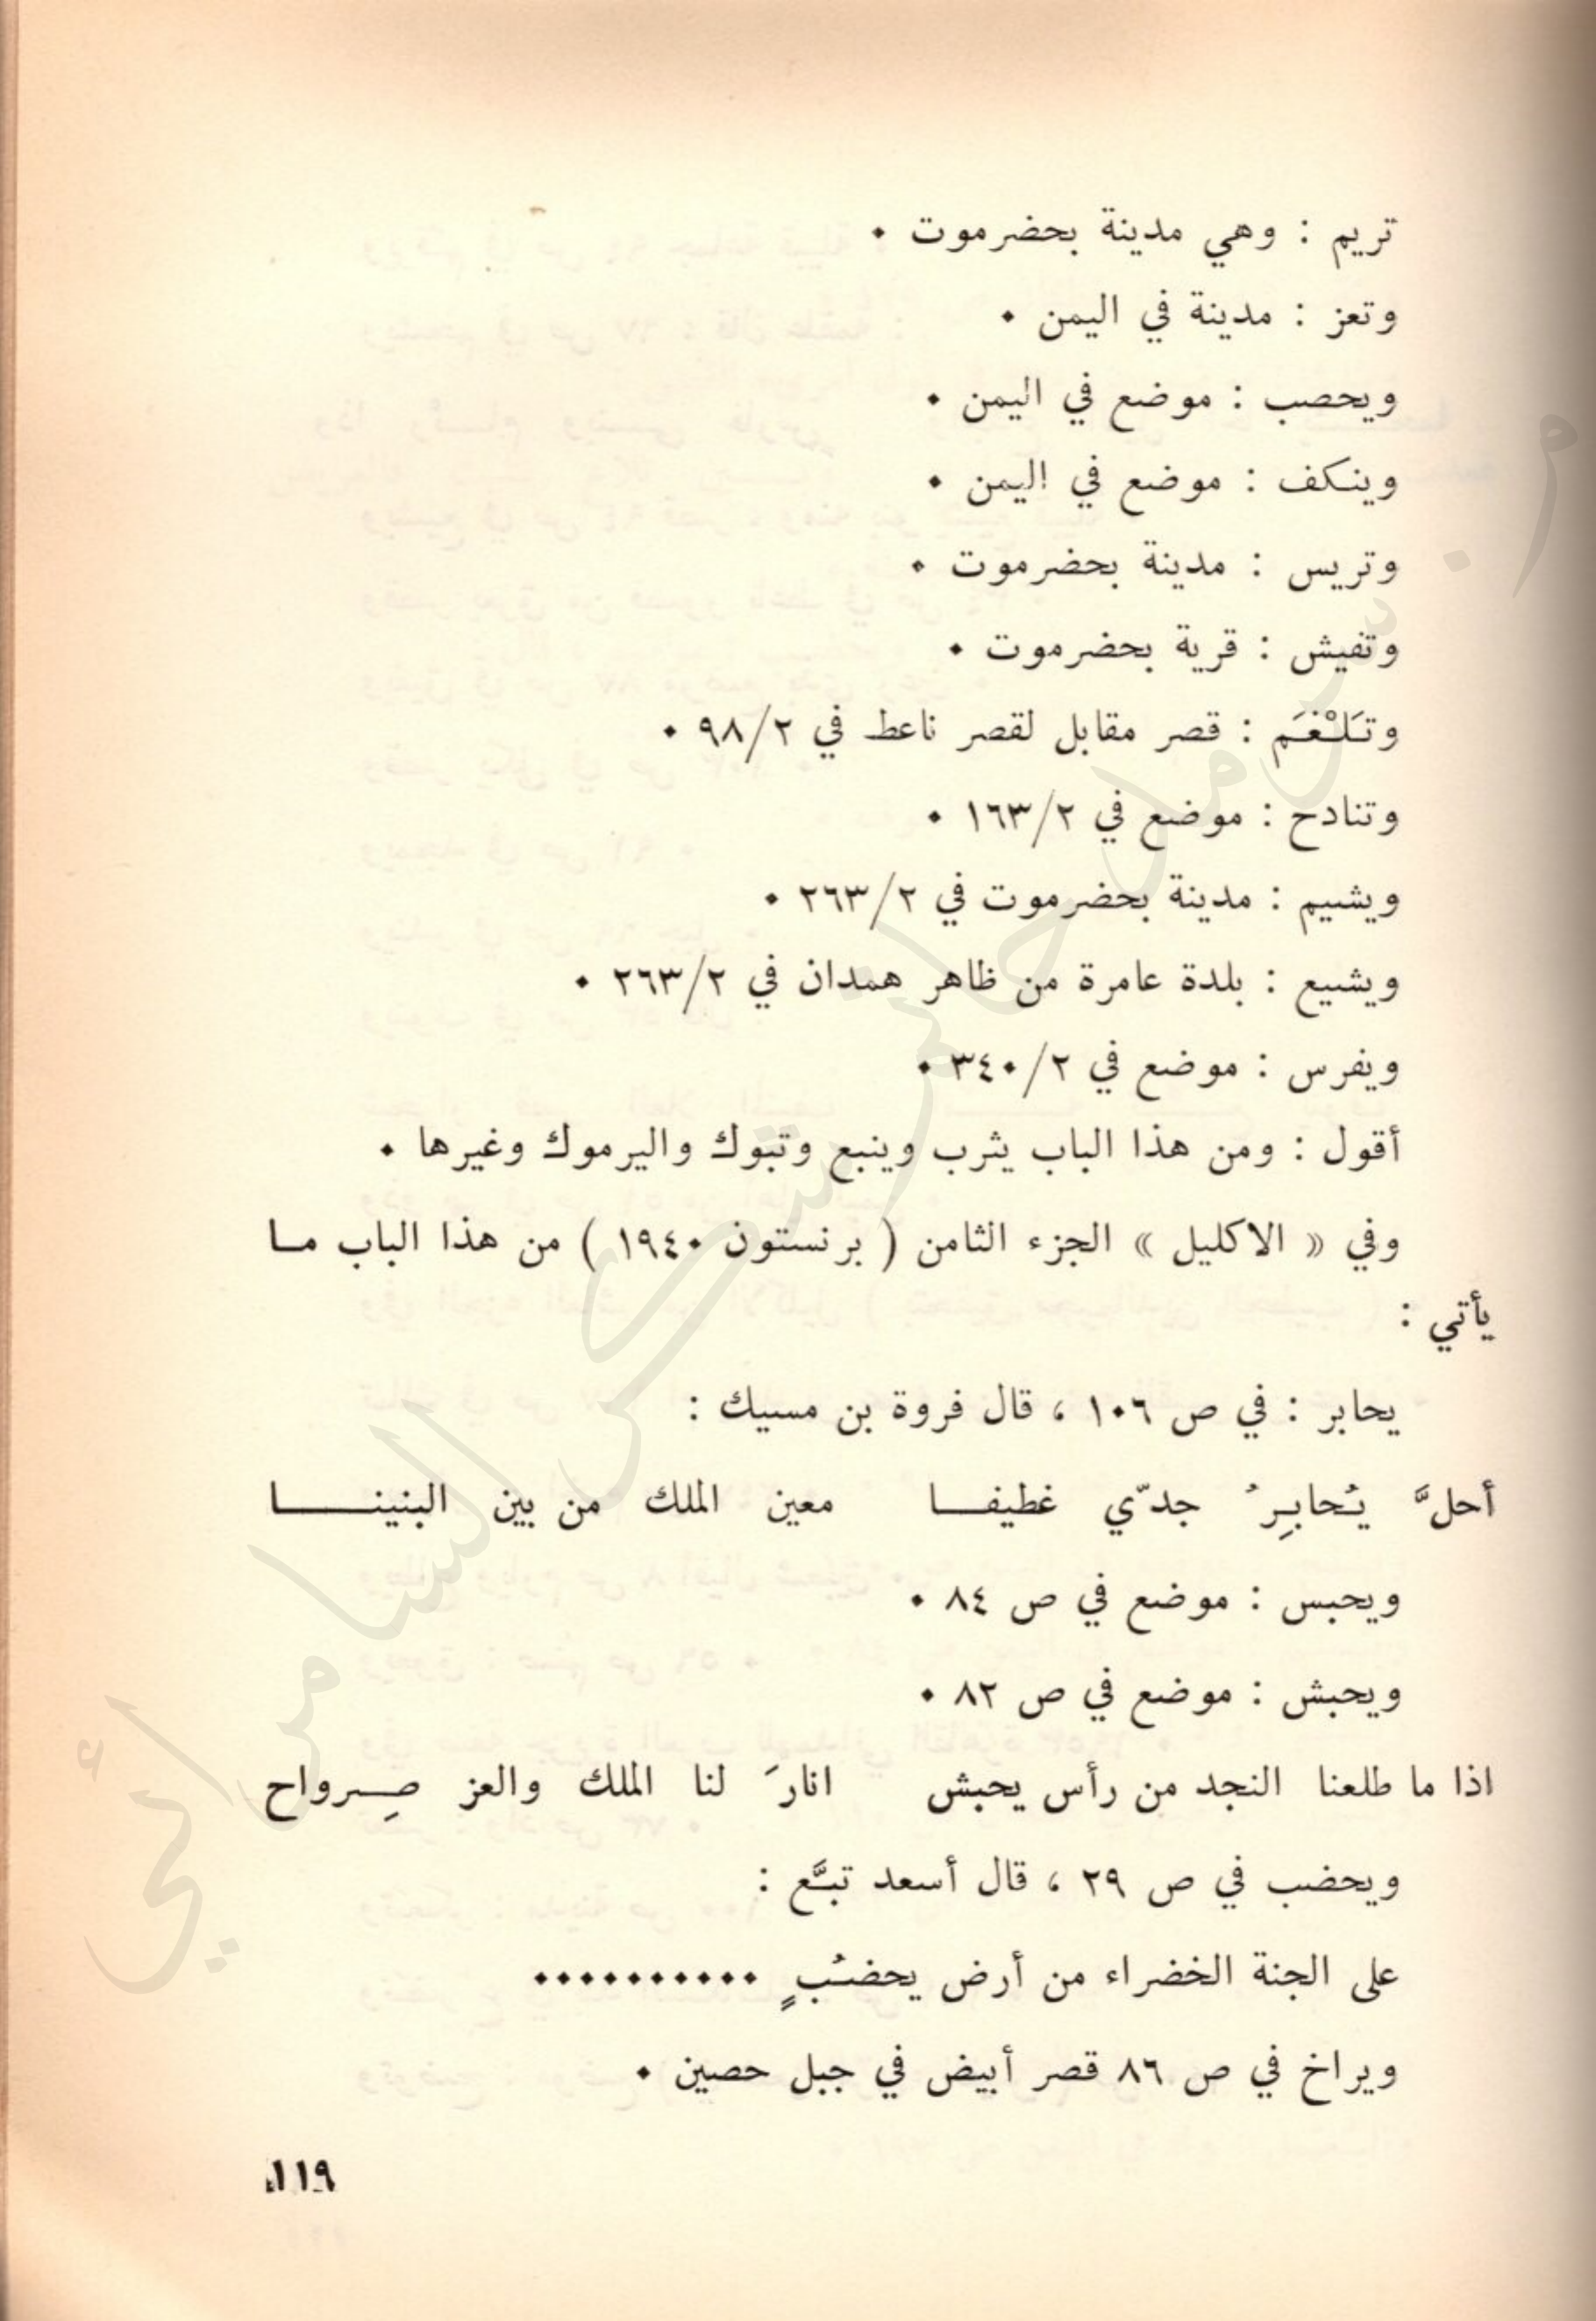 تريم : وهي مدينة بحضرموت ٠
وتعز : مدينة في اليمن ٠
ويحصب : موضع في اليمن ٠
وينكف : موضع في اليمن ٠
وتريس : مدينة بحضرموت ٠
وتفيش : قرية بحضرموت ٠
وتَلْغَم : قصر مقابل لقصر ناعط في ٩٨/٢ ٠
وتنادح : موضع في ١٦٣/٢ ٠
ويشيم : مدينة بحضرموت في ٢٦٣/٢ ٠
ويشيع : بلدة عامرة من ظاهر همدان في ٢٦٣/٢ ٠
ويفرس : موضع في ٣٤٠/٢ ٠
أقول : ومن هذا الباب يثرب وينبع وتبوك واليرموك وغيرها ٠
وفي « الاكليل » الجزء الثامن ( برنستون ١٩٤٠ ) من هذا الباب ما
يأتي :
يحابر : في ص ١٠٦ ، قال فروة بن مسيك :
أحلَّ يُحابِرُ جدّي غطيفا معين الملك من بين البنينا
ويحبس : موضع في ص ٨٤ ٠
ويحبش : موضع في ص ٨٢ ٠
اذا ما طلعنا النجد من رأس يحبش انارَ لنا الملك والعز صِرواح
ويحضب في ص ٢٩ ، قال أسعد تبَّع :
على الجنة الخضراء من أرض يحضُبٍ ٠٠٠٠٠٠٠٠٠٠
ويراخ في ص ٨٦ قصر أبيض في جبل حصين ٠
١١٩
من مل خانه شكر السامرائي